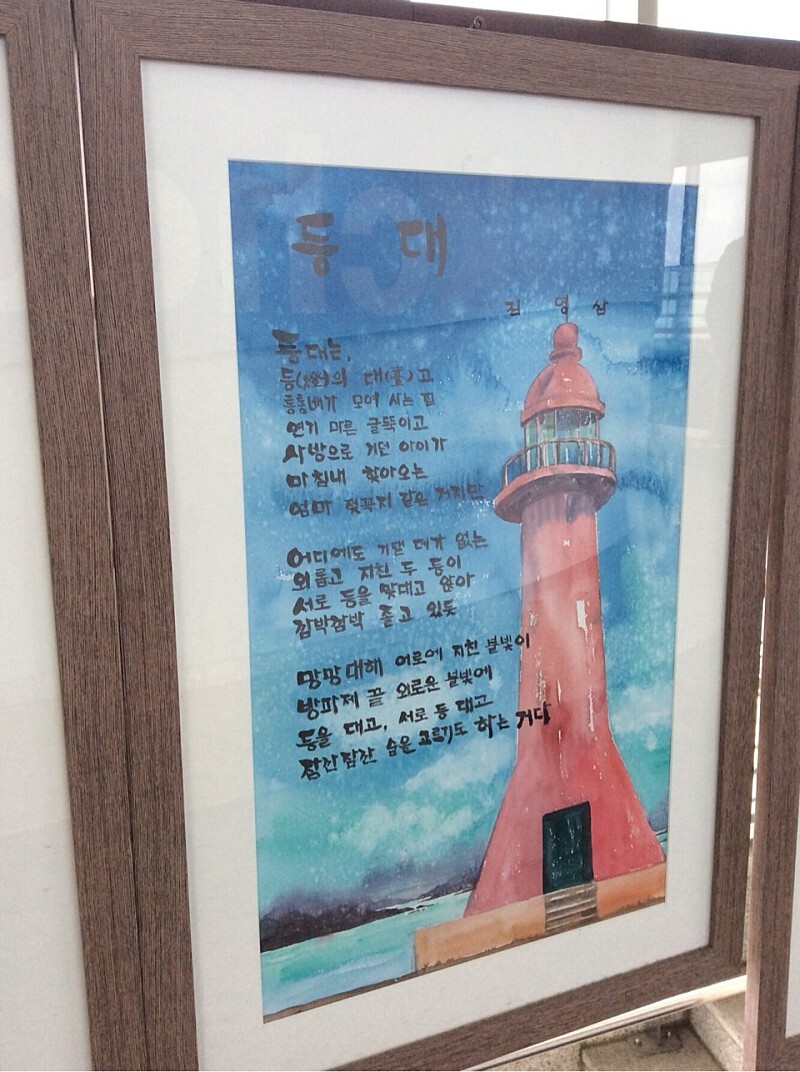 등 대
김 영 삼
등대는,
등(燈)의 대(臺)고
통통배가 모여 사는 집
연기 마른 굴뚝이고
사방으로 기던 아이가
마침내 찾아오는
엄마 젖꼭지 같은 거지만
어디에도 기댈 데가 없는
외롭고 지친 두 등이
서로 등을 맞대고 앉아
깜박깜박 졸고 있듯
망망대해 어로에 지친 불빛이
방파제 끝 외로운 불빛에
등을 대고, 서로 등 대고
잠간잠간 숨을 고르기도 하는 거다